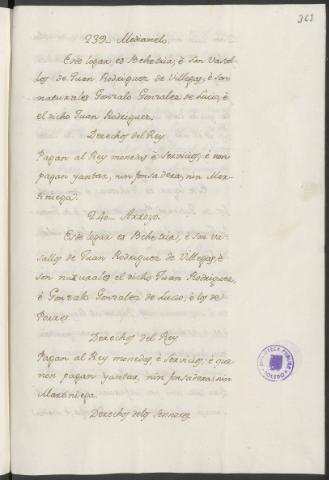 363
239_ Medianelo.
Este logar es Behetria, è son Vasal-
los de Juan Rodriguez de Villegas, è son
naturales Gonzalo Gonzalez de Lucio, è
el dicho Juan Rodriguez.
Derechos del Rey
Pagan al Rey monedas è Servicios, è non
pagan yantar, nin fonsadera, nin Mar-
tiniega.
240_ Arroyo.
Este logar es Behetria, è son Va-
sallos de Juan Rodriguez de Villegas, è
son naturales el dicho Juan Rodriguez,
è Gonzalo Gonzalez de Lucio, è los de
Porres
Derechos del Rey
Pagan al Rey monedas, è Servicios, è que
non pagan yantar, nin fonsadera, nin
Martiniega
Derechos delos Sennores
BIBLIOTECA PUBLICA
TOLEDO